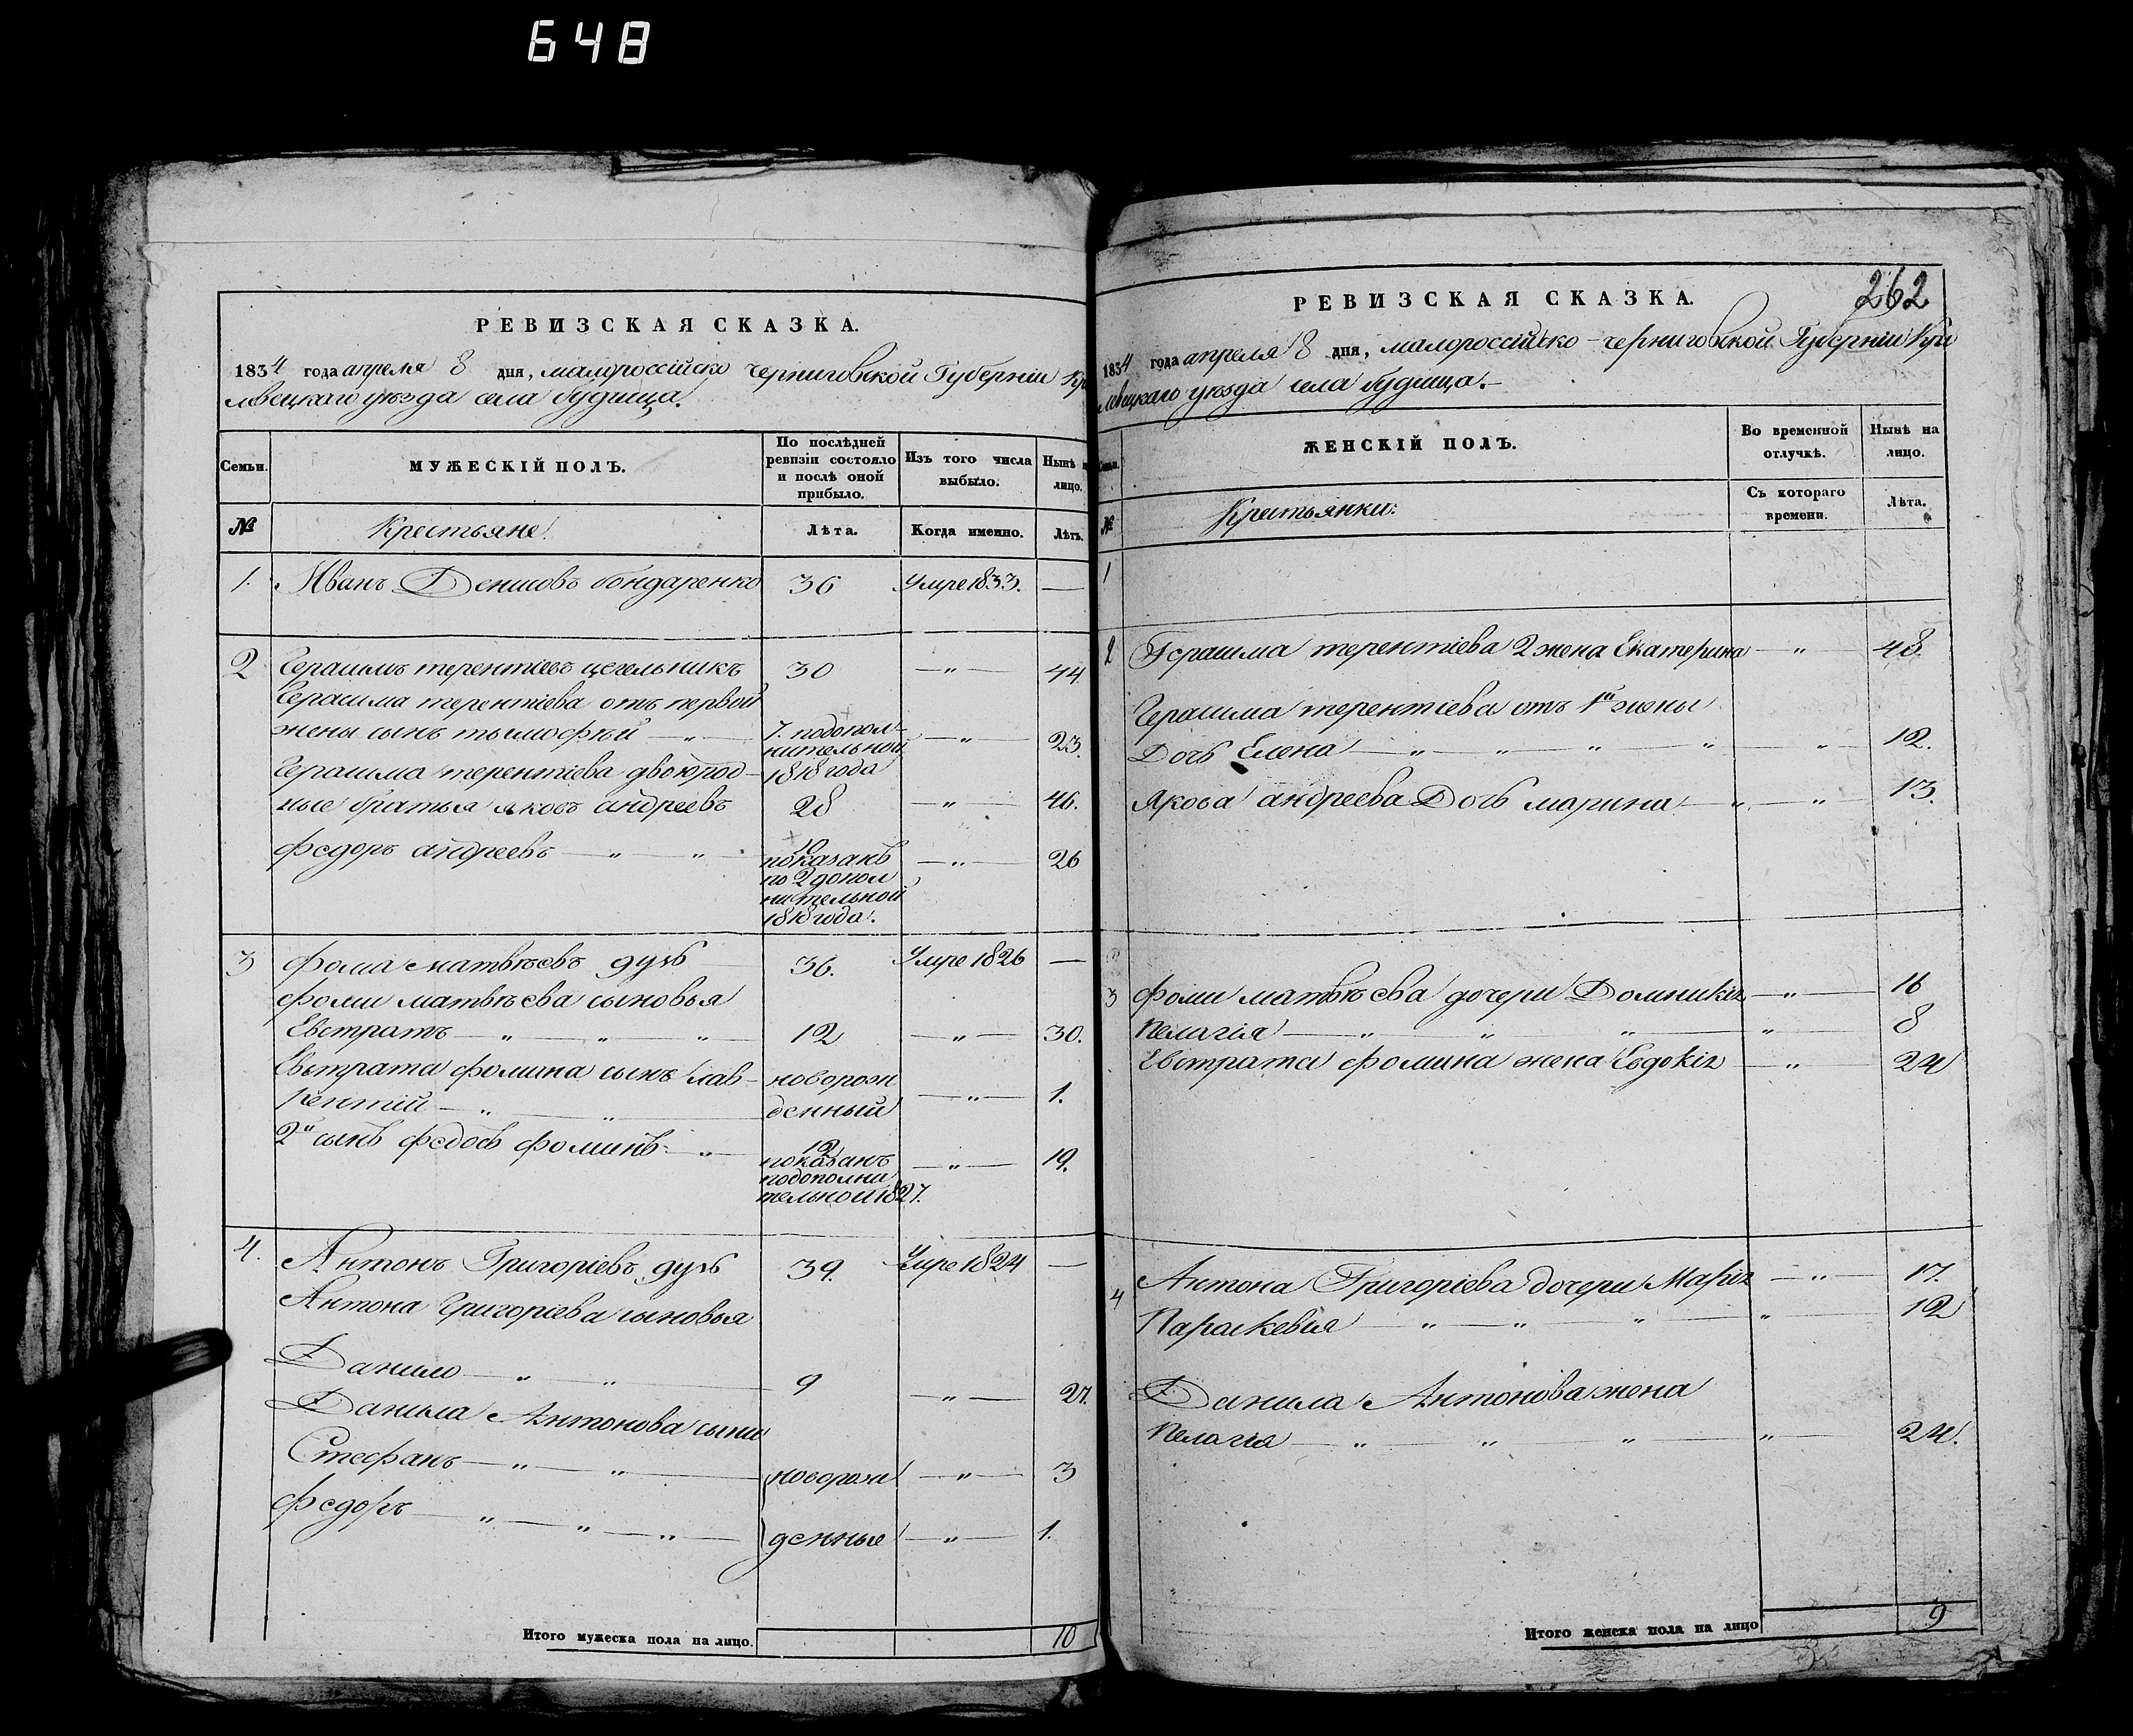 648
РЕВИЗСКАЯ СКАЗКА.
1834 года апреля 8 дня, малороссійско черниговской Губерніи Кро
левецкаго уѣзда села будища.
Семьи.
МУЖЕСКІЙ ПОЛЪ.
По послѣдней ревизіи состояло и послѣ оной прибыло.
Изъ того числа выбыло.
Нынѣ на лицо.
№
Крестьяне.
Лѣта.
Когда именно.
Лѣтъ.
1. Иванъ Денисовъ бондаренко 36 Умре 1833. —
2 Герасимъ терентіевъ цегельникъ 30 — " — 44.
Герасима терентіева отъ первой
жены сынъ тымофѣй — " — 7. подопол- — " — 23.
нительной
Герасима терентіева двоюрод- 1818 года
ные братья яковъ андреевъ 28 — " — 46.
федоръ андреевъ — " — " — 10 — " — 26
показанъ
по 2 допол
нительной
1818 года.
3 фома матвѣевъ дуль 36. Умре 1826 —
фоми матвѣева сыновья
Евстратъ — " — " — " 12 — " — 30.
Евстрата фомина сынъ лав- новорож
рентій — " — " — денный — " — 1.
2й сынъ федосъ фоминъ — " — 12 — " — 19.
показанъ
подополни
тельной 1827.
4. Антонъ Григоріевъ дуль 39. Умре 1824 —
Антона Григоріева сыновья
Данило — " — " — 9 — " — 27.
Данила Антонова сыни
Стефанъ — " — " — новорож — " — 3
федоръ — " — " — " — денные — " — 1.
Итого мужеска пола на лицо. 10
262
РЕВИЗСКАЯ СКАЗКА.
1834 года апреля 8 дня, малороссійско-черниговской Губерніи Кро
левецкаго уѣзда села будища.
Семьи.
ЖЕНСКІЙ ПОЛЪ.
Во временной отлучкѣ.
Нынѣ на лицо.
№
Крестьянки:
Съ котораго времени.
Лѣта.
1
2 Герасима терентіева 2 жена Екатерина — " 48.
Герасима терентіева отъ 1й жены
Дочь Елена — " — " — " — " — " — 12.
Якова андреева Дочь марина — " — " — 13.
3 фоми матвѣева дочери Домникія — " — 16
Пелагія — " — " — " — " — 8
Евстрата фомина жена Евдокія — " — 24
4 Антона Григоріева дочери Марія — " — 17.
Параскевія — " — " — " — " — 12
Данила Антонова жена
Пелагія — " — " — " — " — 24.
Итого женска пола на лицо 9